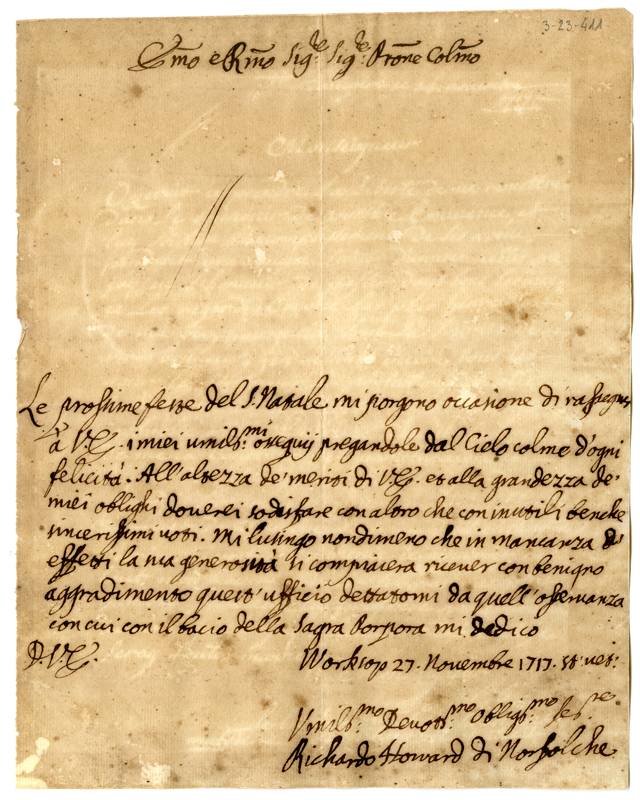 3-23-411
Emo e Rmo Sigre Sigre Prone Colmo
Le prossime feste del S. Natale mi porgono occasione di rassegnar
à V.E. i miei umilsmi ossequij pregandole dal Cielo colmo d'ogni
felicità. All'altezza de' meriti di V.E. et alla grandezza de'
miei oblighi douerei sodisfare con altro che con inutili benche
sincerissimi uoti. Mi lusingo nondimeno che in mancanza di
effetti la sua generosità si compiacera riceuer con benigno
aggradimento quest'ufficio dettatomi da quell'osseruanza
con cui con il bacio della Sagra Porpora mi dedico
D.V.E.
Worksop 27. Novembre 1717. st: vet:
Vmilsmo Deuotsmo Obligsmo Sere
Richardo Howard di Norfolche